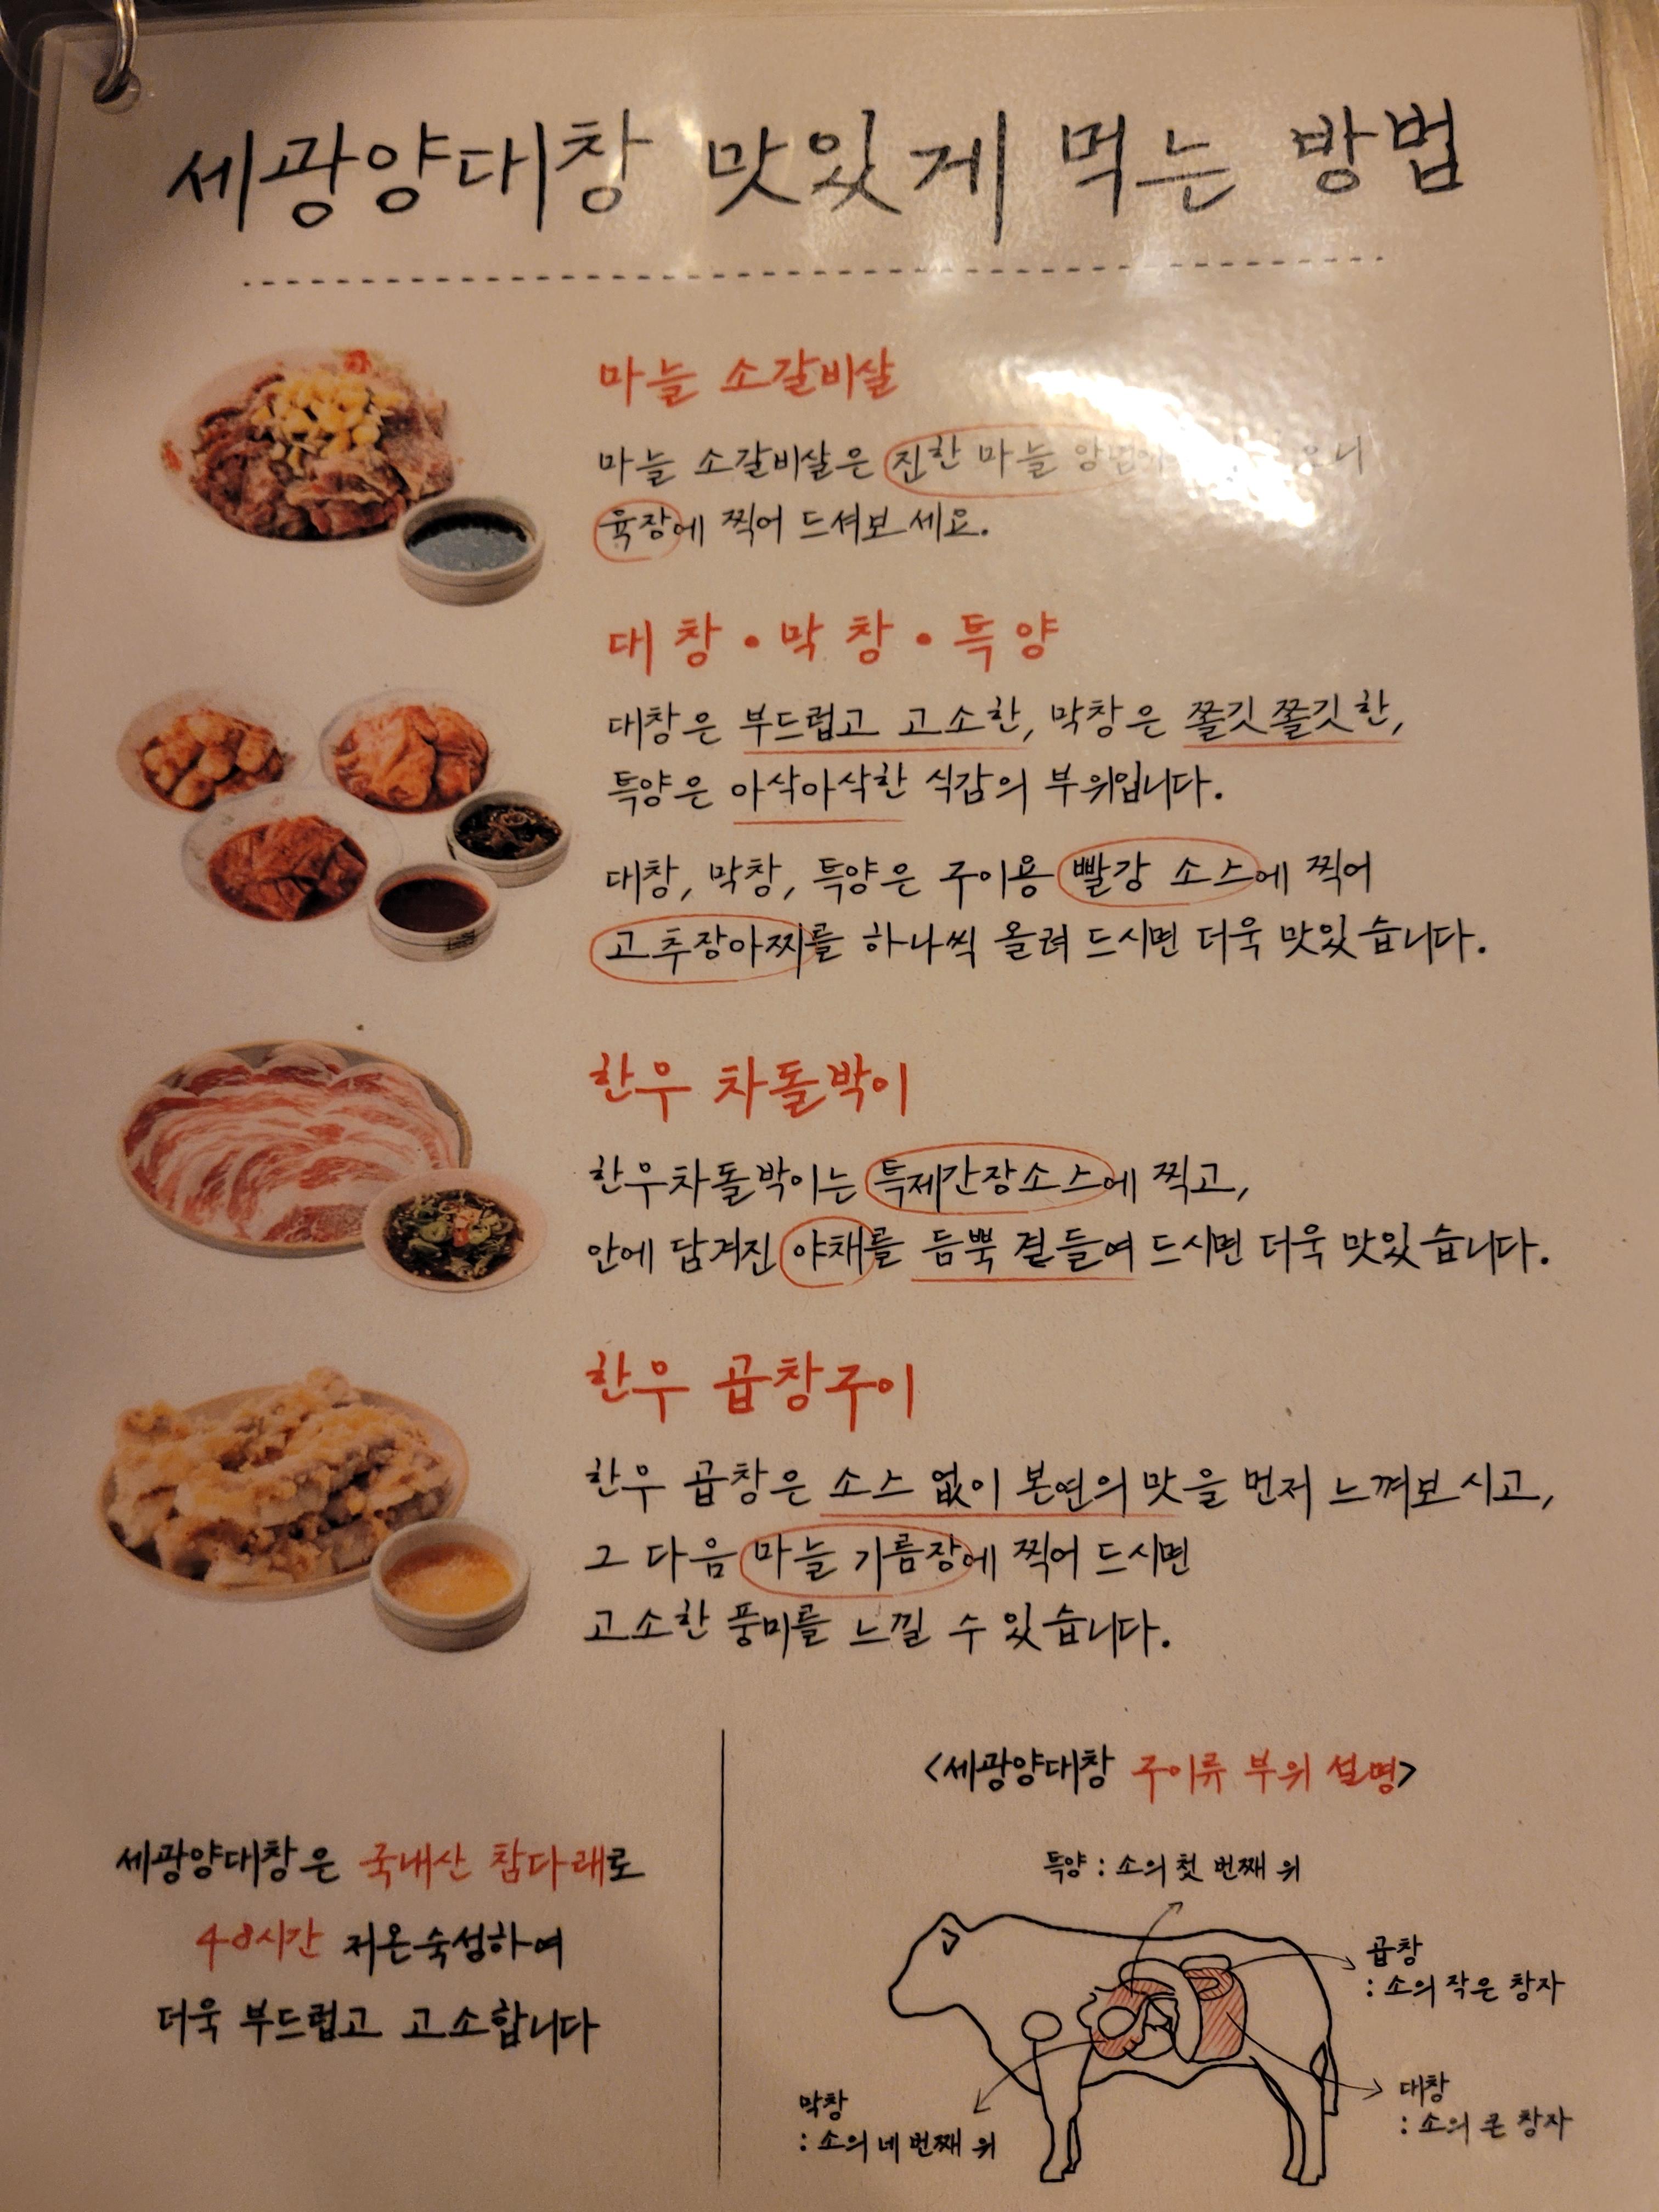 세광양대창 맛있게 먹는 방법
마늘 소갈비살
마늘 소갈비살은 진한 마늘
육장에 찍어 드셔보세요.
대창·막창·특양
대창은 부드럽고 고소한, 막창은 쫄깃쫄깃한,
특양은 아삭아삭한 식감의 부위입니다.
대창, 막창, 특양은 구이용 빨강 소스에 찍어
고추장아찌를 하나씩 올려 드시면 더욱 맛있습니다.
한우 차돌박이
한우차돌박이는 특제간장소스에 찍고,
안에 담겨진 야채를 듬뿍 곁들여 드시면 더욱 맛있습니다.
한우 곱창구이
한우 곱창은 소스 없이 본연의 맛을 먼저 느껴보시고,
그 다음 마늘 기름장에 찍어 드시면
고소한 풍미를 느낄 수 있습니다.
세광양대창은 국내산 참다래로
48시간 저온숙성하여
더욱 부드럽고 고소합니다
<세광양대창 구이류 부위 설명>
특양 : 소의 첫 번째 위
곱창
: 소의 작은 창자
대창
: 소의 큰 창자
막창
: 소의 네 번째 위